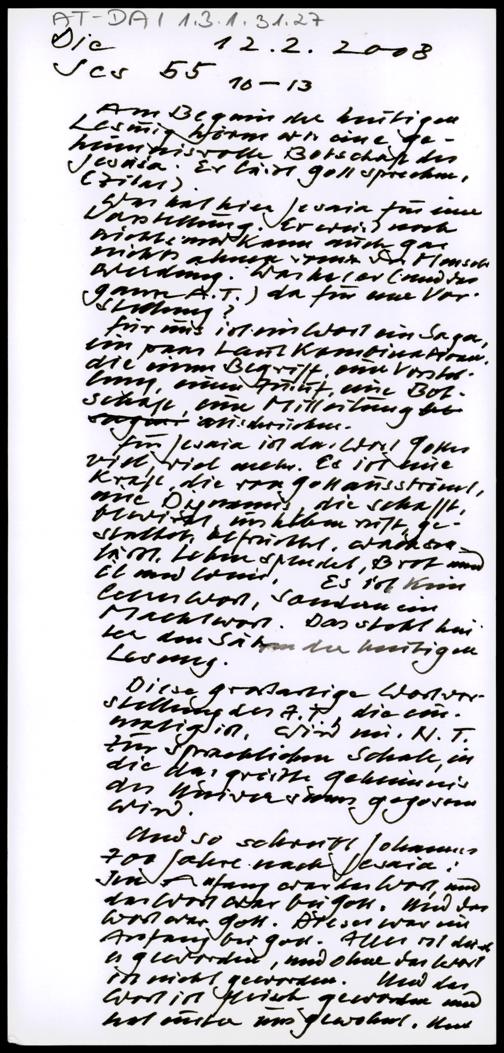 AT-DA1 1.3.1.31.27
Die 12.2.2008
Jes 55 10-13
Am Beginn der heutigen
Lesung hören wir eine ge-
heimnisvolle Botschaft des
Jesaia. Er läßt Gott sprechen,
(Zitat).
Was hat hier Jesaia für eine
Vorstellung. Er weiß noch
nichts und kann auch gar
nichts ahnen von der Mensch
werdung. Was hat er (und das
ganze A.T.) da für eine Vor-
stellung?
Für uns ist ein Wort ein Sagen,
ein paar Laut Kombinationen,
die einen Begriff, eine Vorstel-
lung, einen, eine Bot-
schaft, eine Mitteilung
ausdrücken.
Für Jesaia ist das Wort Gottes
viel, viel mehr. Es ist eine
Kraft, die von Gott ausströmt,
eine Dynamis, die schafft,
bewirkt, ins Leben ruft, ge-
staltet, befruchtet, wachsen
läßt, Leben spendet, Brot und
Öl und Wein. Es ist kein
leeres Wort, sondern ein
Machtwort. Das steht hin
ter den Sätzen der heutigen
Lesung.
Diese großartige Wortvor-
stellung des A.T., die ein-
malig ist, wird im N.T.
zur sprachlichen Schale, in
die das größte Geheimnis
des Universums gegossen
wird.
Und so schreibt Johannes
700 Jahre nach Jesaia:
Im Anfang war das Wort, und
das Wort war bei Gott. Und das
Wort war Gott. Dieses war im
Anfang bei Gott. Alles ist durch
es geworden, und ohne das Wort
ist nichts geworden. Und das
Wort ist Fleisch geworden und
hat unter uns gewohnt. Und